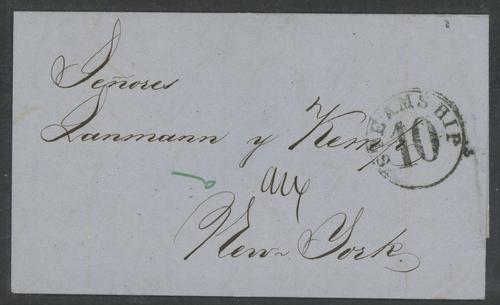 Señores
Lanmann y Kemp
STEAMSHIP
10
New-York.